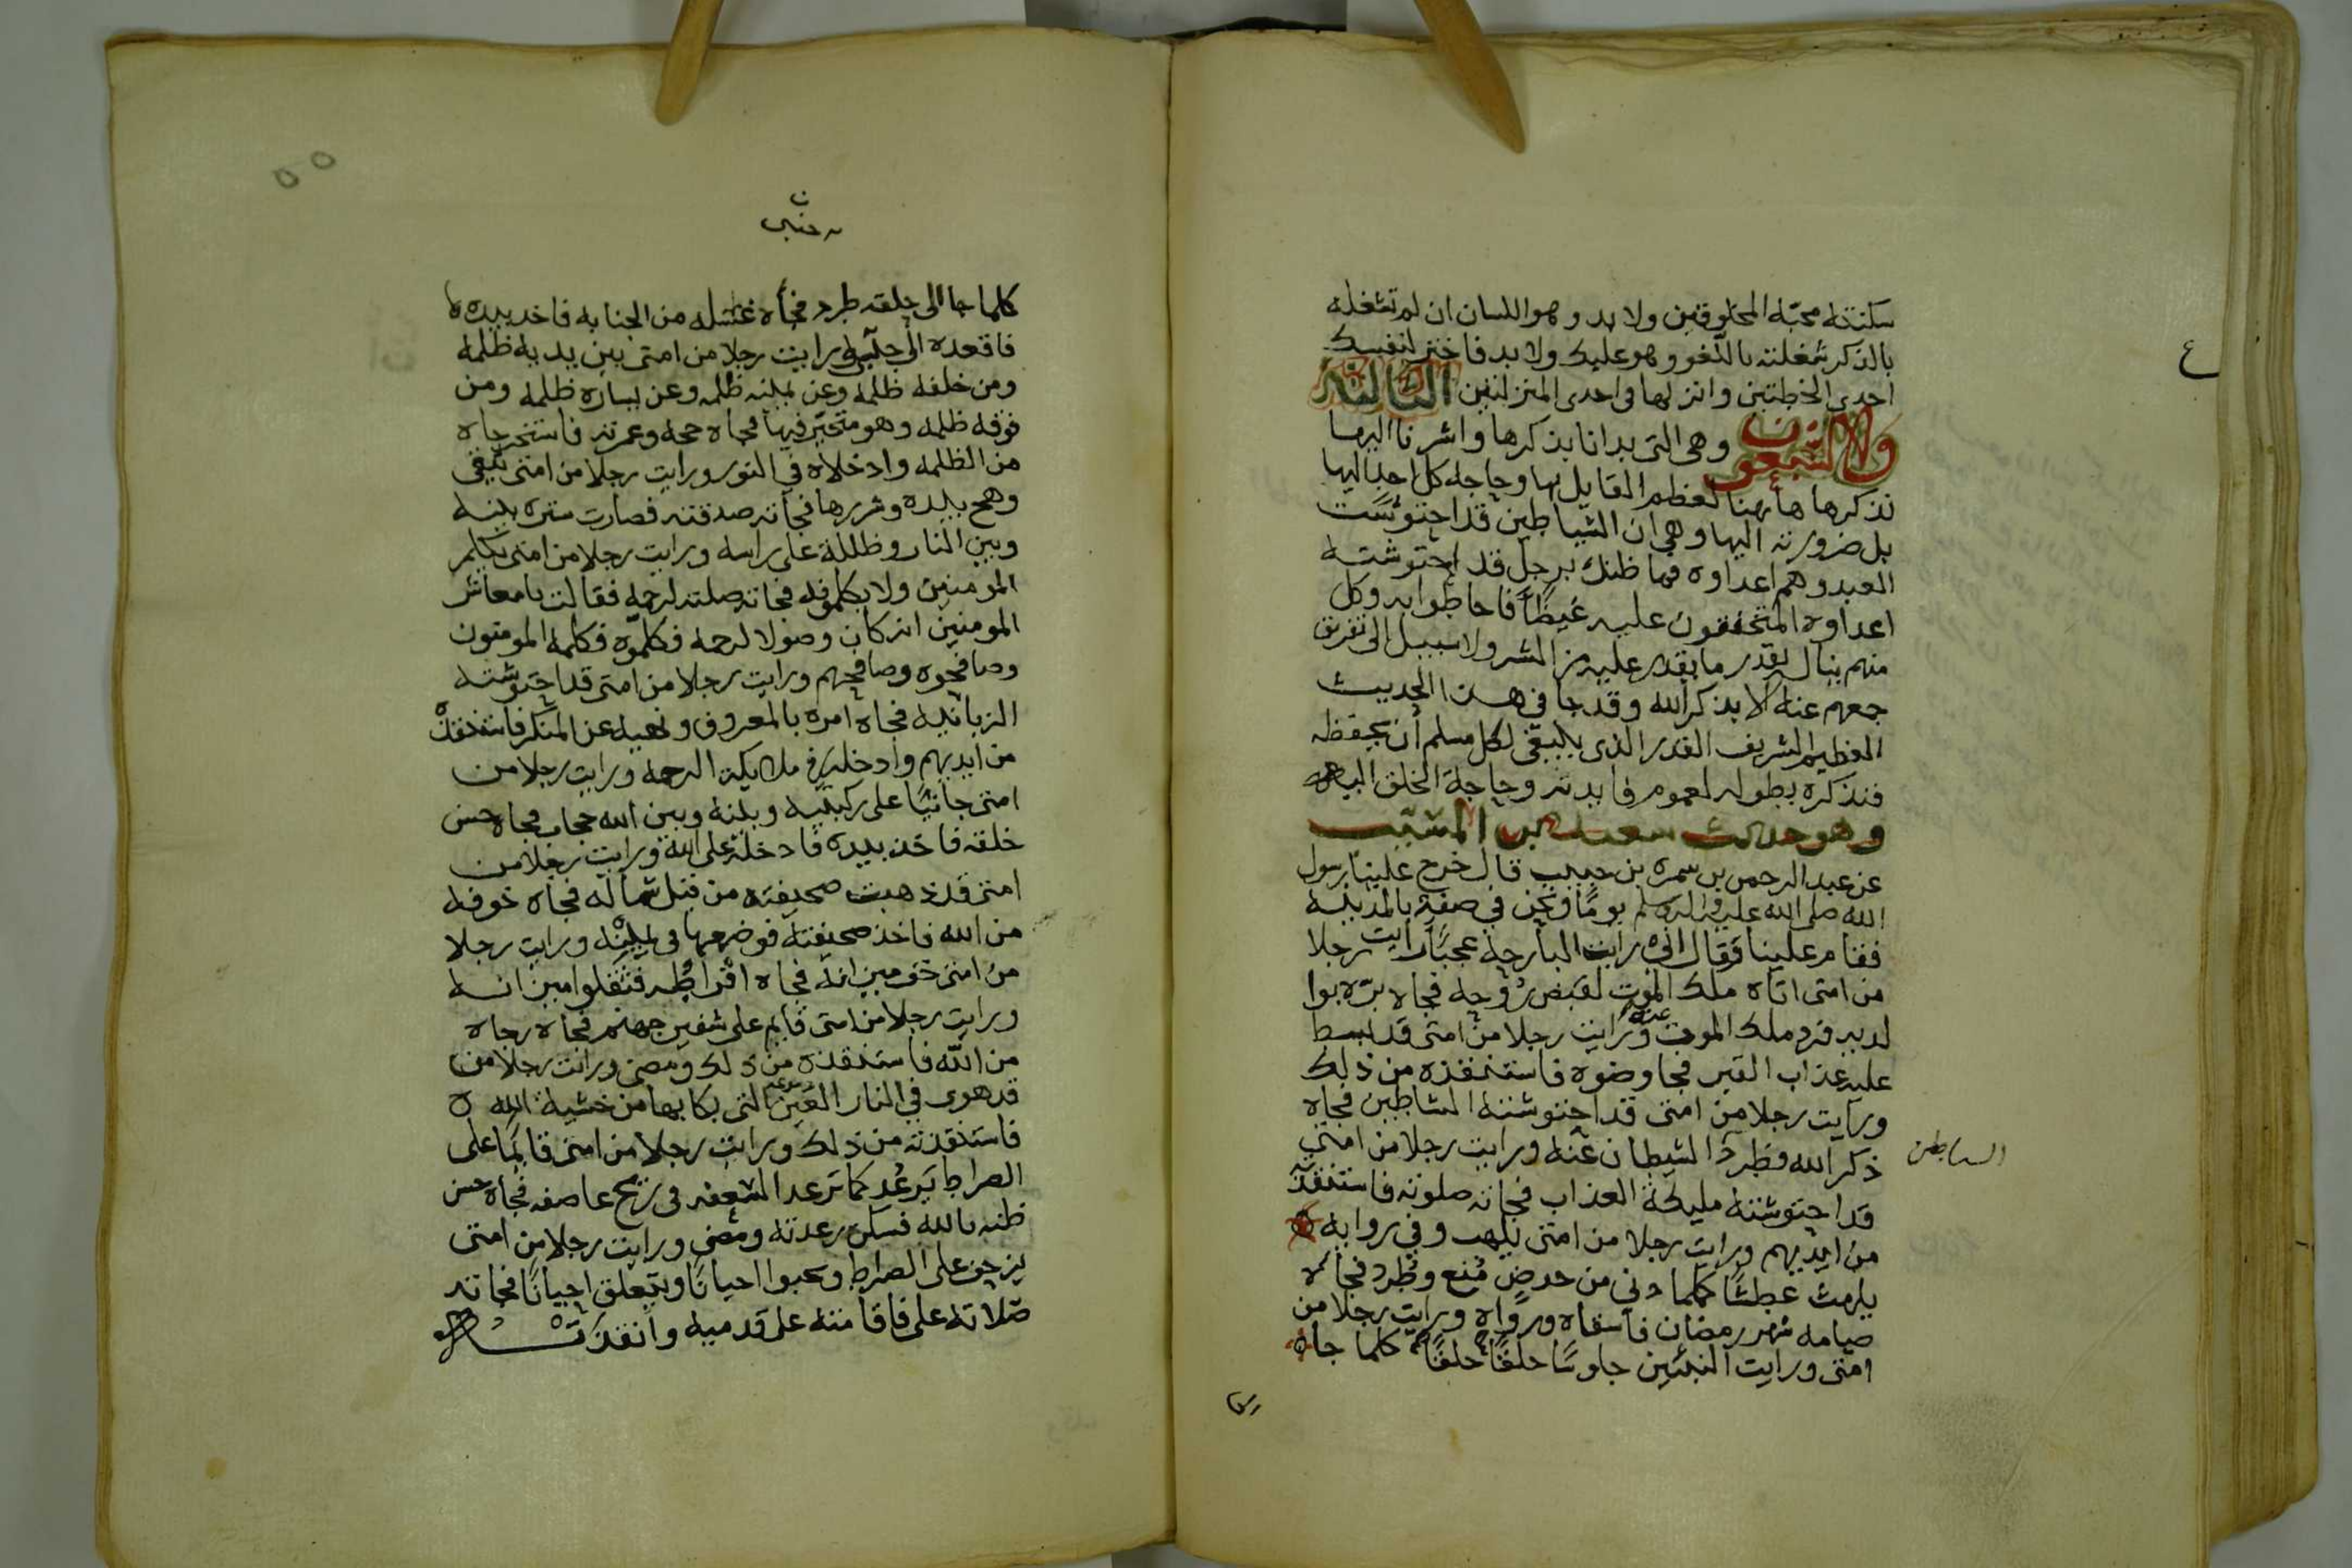 سكنته محبة المخلوقين ولا بد وهو اللسان ان لم تشغله
بالذكر شغلته باللغو وهو عليك ولا بد فاختر لنفسك
احدى الخطتين وانزلها في احدى المنزلتين الثالثة
والسبعون وهي التي بدانا بذكرها واشرنا اليها
نذكرها هاهنا لعظم القايل بها وحاجة كل احد اليها
بل ضرورته اليها وهي ان الشياطين قد احتوشت
العبد وهم اعداوه فما ظنك برجل قد احتوشته
اعداوه المحنقون عليه غيظا فاحاطوا به وكل
منهم ينال بقدر ما يقدر عليه من الشر ولا سبيل الى تفريق
جمعهم عنه الا بذكر الله وقد جا في هذا الحديث
العظيم الشريف القدر الذي ينبغي لكل مسلم ان يحفظه
فنذكره بطوله لعموم فايدته وحاجة الخلق اليه
وهو حديث سعيد بن المسيب
عن عبد الرحمن بن سمره بن حبيب قال خرج علينا رسول
الله صلى الله عليه واله وسلم يومًا ونحن في صفة بالمدينة
فقام علينا وقال اني رايت البارحة عجبًا رايت رجلا
من امتي اتاه ملك الموت لقبض روحه فجاه بره بوا
لديه فرد ملك الموت عنه ورايت رجلا من امتي قد بسط
عليه عذاب القبر فجا وضوه فاستنقذه من ذلك
ورايت رجلا من امتي قد احتوشته الشاطين فجاه
ذكر الله فطرد الشيطان عنه ورايت رجلا من امتي
الساطين
قد احتوشته مليكة العذاب فجاته صلوته فاستنقذته
من ايديهم ورايت رجلا من امتي يلهب وفي روايه
يلهث عطشًا كلما دنى من حوض مُنع وطُرد فجاه
صيامه شهر رمضان فاسقاه ورواه ورايت رجلا من
امتي ورايت النبيين جلوسًا حلقًا حلقًا كلما جاه
كلما جا الى حلقه طرد فجأه غسله من الجنابه فاخد بيده
فاقعده الى جنبي ورايت رجلا من امتي بين يديه ظلمه
ومن خلفه ظلمه وعن يمينه ظلمه وعن يساره ظلمه ومن
فوقه ظلمه وهو متحيّر فيها فجاه حجه وعمرته فاستخرجاه
من الظلمه وادخلاه في النور ورايت رجلا من امتي يتقي
وهج بيده وشررها فجاته صدقته فصارت ستره بينه
وبين النار وظللة على راسه ورايت رجلا من امتي يكلم
المومنين ولا يكلمونه فجاته صلته لرحمه فقالت يامعاشر
المومنين انه كان وصولا لرحمه فكلموه فكلمه المومنون
وصافحوه وصافحهم ورايت رجلا من امتي قد احتوشته
الزبانيه فجاه امره بالمعروف ونهيه عن المنكر فاستنقذه
من ايديهم وادخله في ملايكة الرحمه ورايت رجلا من
امتي جاثيًا على ركبتيه وبينه وبين الله حجاب فجاه حسن
خلقه فاخذ بيده فادخله على الله ورايت رجلا من
امتي قد ذهبت صحيفته من قبل شماله فجاه خوفه
من الله فاخذ صحيفته فوضعها في يمينه ورايت رجلا
من امتي خف ميزانه فجاه افراطه فثقلوا ميزانه
ورايت رجلا من امتي قايم على شفير جهنم فجاه رجاه
من الله فاستنقذه من ذلك ومضى ورايت رجلا من
قد هوى في النار التي بكا بها من خشية الله
فاستنقذته من ذلك ورايت رجلا من امتي قايمًا على
الصراط يرعُد كما ترعد السعفه في ريح عاصفه فجاه حسن
ظنه بالله فسكن رعدته ومضى ورايت رجلا من امتي
يزحف على الصراط ويحبوا احيانًا ويتعلق احيانًا فجاته
صلاته علي فاقامته على قدميه وانقذته